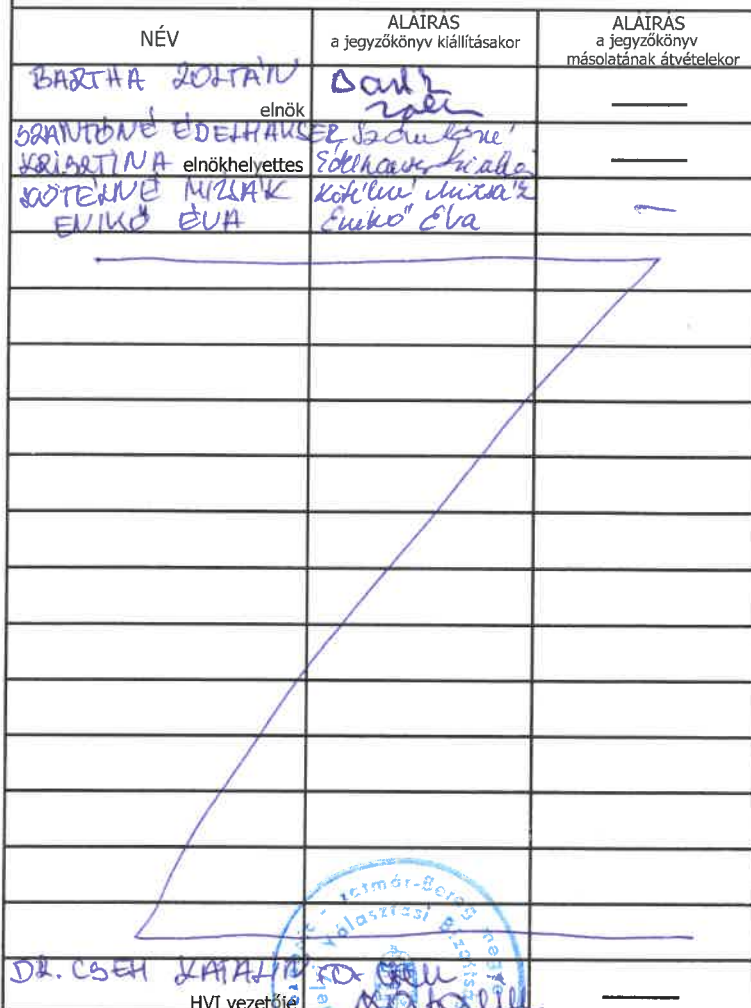 NÉV
ALÁÍRÁS
a jegyzőkönyv kiállításakor
ALÁÍRÁS
a jegyzőkönyv
másolatának átvételekor
BARTHA ZOLTÁN
elnök
SZÁNTÓNÉ EDELHAUSER
KRISZTINA elnökhelyettes
Szántóné
Edelhauser Krisztina
KÖTELNÉ MIZSÁK
ENIKŐ ÉVA
Enikő Éva
DR. CSEH KATALIN
HVI vezetője
Dr. Cseh
Katalin
Szatmár-Bereg megye
Választási Bizottság